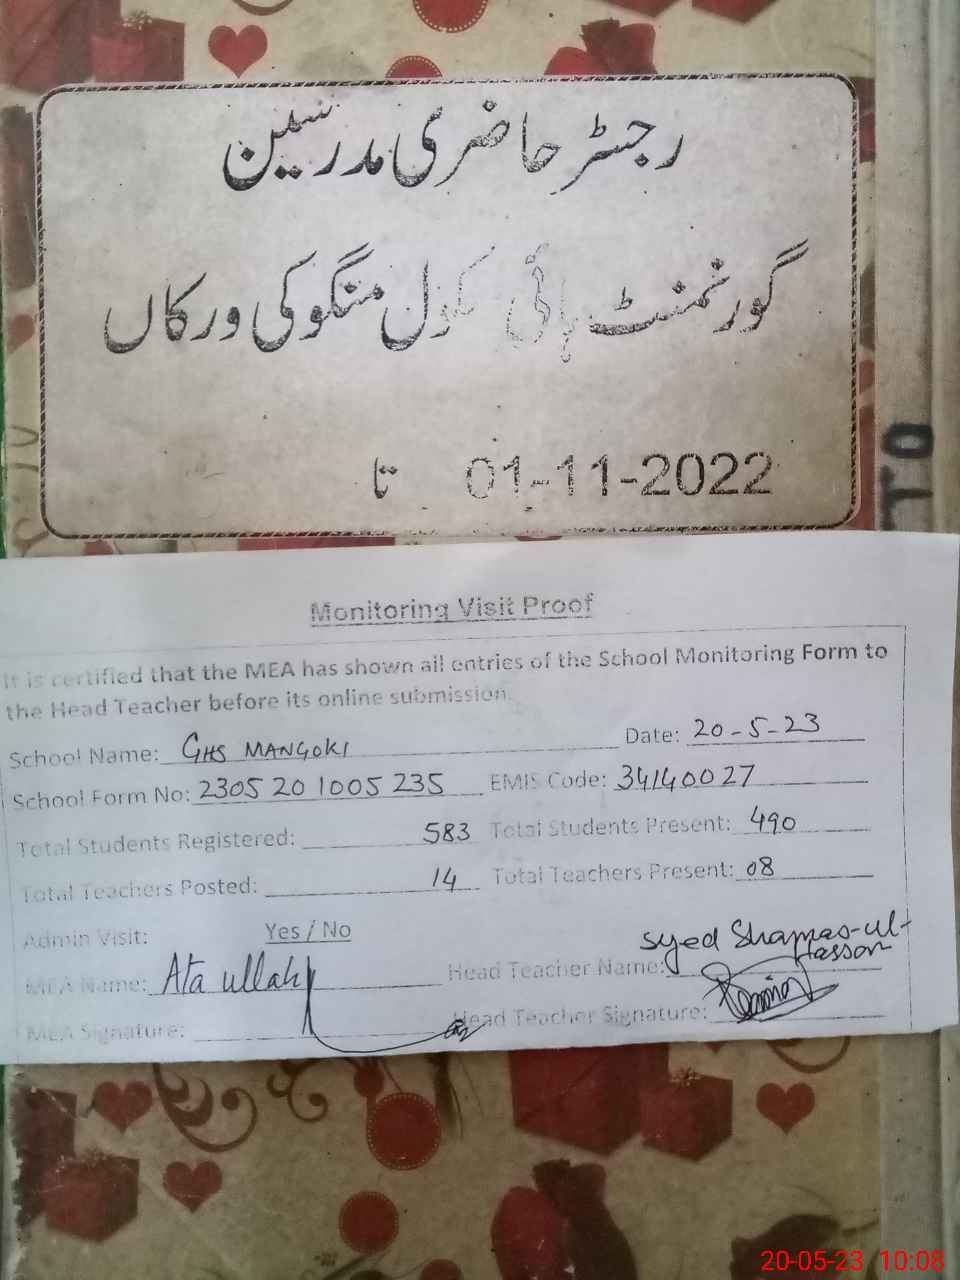 رجسٹر حاضری مدرسین
گورنمنٹ ہائی سکول منگوکی ورکاں
01-11-2022 تا
TO
Monitoring Visit Proof
It is certified that the MEA has shown all entries of the School Monitoring Form to
the Head Teacher before its online submission.
School Name: GHS MANGOKI Date: 20-5-23
School Form No: 2305 20 1005 235 EMIS Code: 34140027
Total Students Registered: 583 Total Students Present: 490
Total Teachers Posted: 14 Total Teachers Present: 08
Admin Visit: Yes / No
MEA Name: Ata ullah Head Teacher Name: Syed Shamas-ul-Hasson
MEA Signature: Head Teacher Signature:
20-05-23 10:08